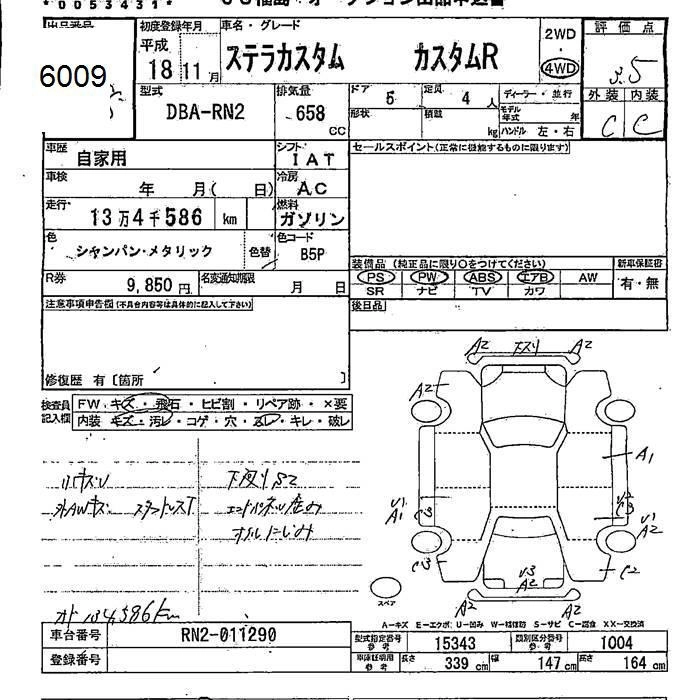 *0053431*
出品番号
6009
初度登録年月
平成
18 11 月
車名・グレード
ステラカスタム カスタムR
2WD
・
4WD
評価点
3.5
外装 内装
C C
型式
DBA-RN2
排気量
658
CC
ドア
5
定員
4 人
形状
積載
kg
ディーラー・並行
モデル年式 年
ハンドル 左・右
車歴
自家用
シフト
IAT
セールスポイント(正常に機能するものに限ります)
車検
年 月( 日)
冷房
AC
走行
13万4千586 km
燃料
ガソリン
色
シャンパン・メタリック
色替
色コード
B5P
装備品 (純正品に限り○をつけてください)
新車保証書
PS PW ABS エアB AW
SR ナビ TV カワ
有・無
R券
9,850 円
名変通知期限
月 日
後日品
注意事項申告欄(不具合内容等は具体的に記入して下さい)
修復歴 有〔箇所 〕
検査員記入欄
FW キズ・飛石・ヒビ割・リペア跡・×要
内装 キズ・汚レ・コゲ・穴・スレ・キレ・破レ
下スリ S2
A2 下スリ A2
A2
A1
U1
A1
C3
U2
C3
U1
A2
C3
C2
U3
A2
A2 A2
スペア
A－キズ E－エクボ U－凹み W－補修跡 S－サビ C－腐食 XX－交換済
車台番号
RN2-011290
登録番号
型式指定番号 参考
15343
類別区分番号 参考
1004
車庫証明用 参考
長さ 339 cm 幅 147 cm 高さ 164 cm